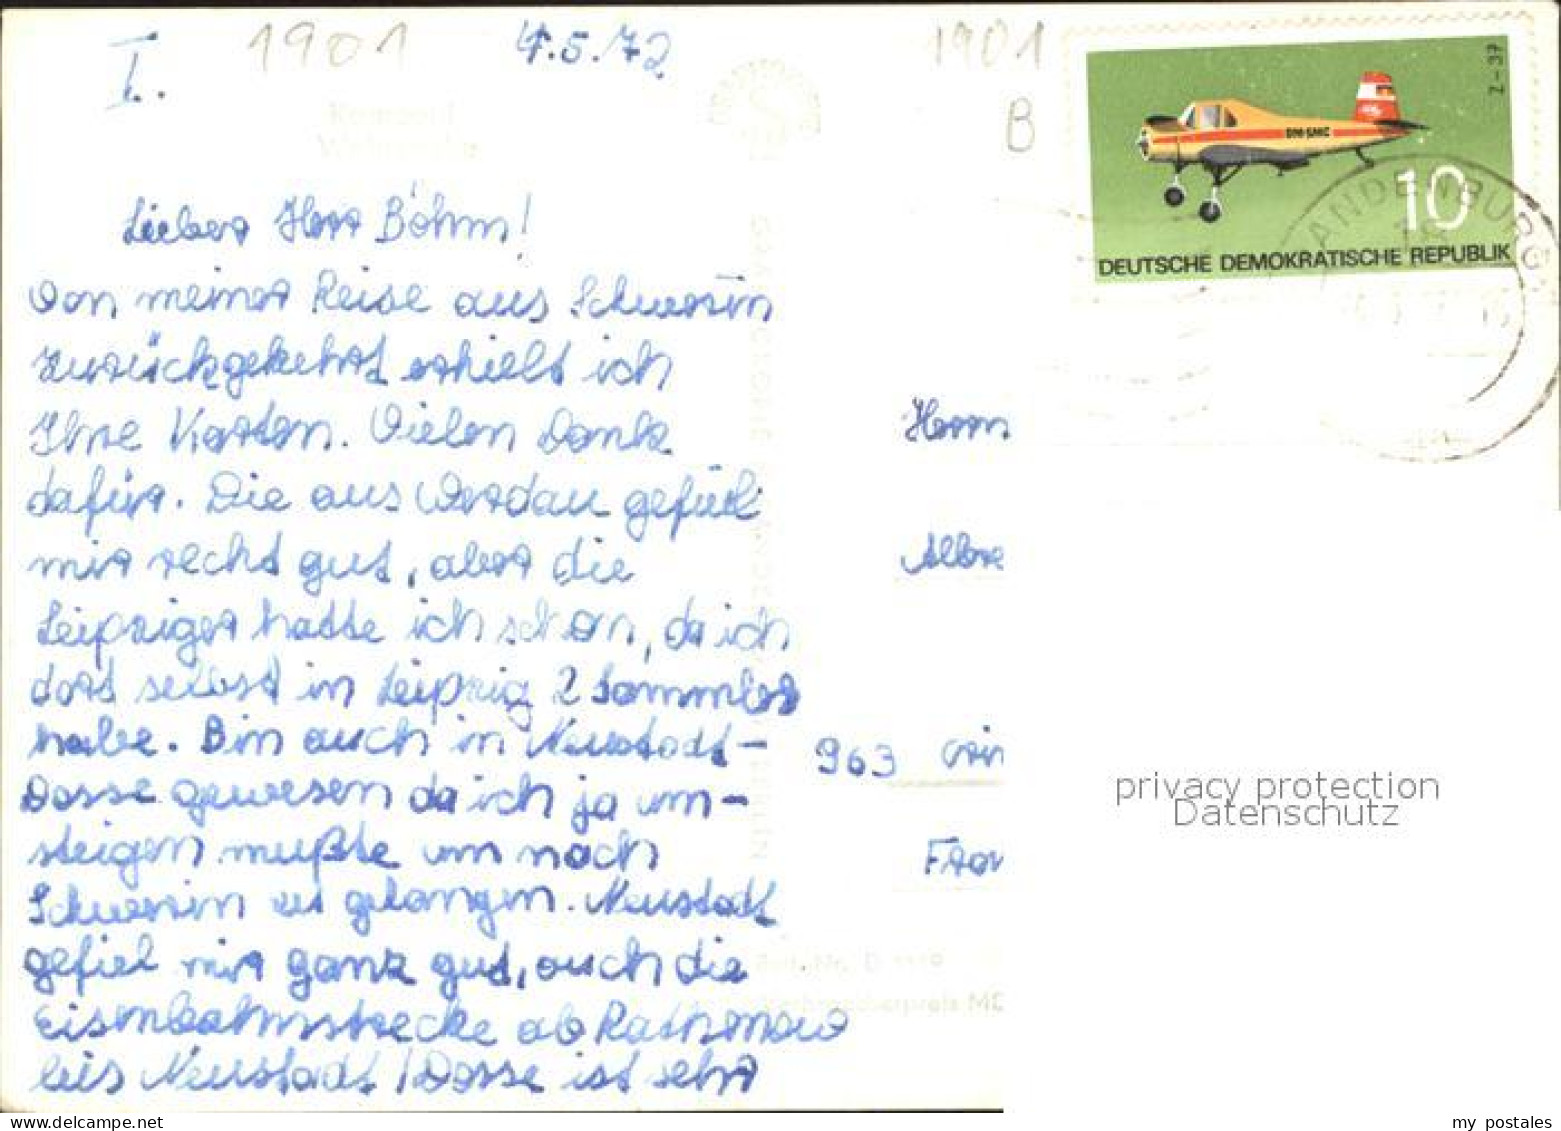 I. 1901 4.5.72 1901
B
Z-37
DM-SMC
10
DEUTSCHE DEMOKRATISCHE REPUBLIK
ANDENBURG
Lieber Herr Böhm!
Von meiner Reise aus Schwerin
zurückgekehrt erhielt ich
Ihre Karten. Vielen Dank
dafür. Die aus Werdau gefiel
mir recht gut, aber die
Leipziger hatte ich schon, da ich
dort selbst in Leipzig 2 Sammler
habe. Bin auch in Neustadt-
Dosse gewesen da ich ja um-
steigen mußte um nach
Schwerin zu gelangen. Neustadt
gefiel mir ganz gut, auch die
Eisenbahnstrecke ab Rathenow
bis Neustadt/Dosse ist sehr
Herrn
Albre
963
Fran
privacy protection
Datenschutz
my postales